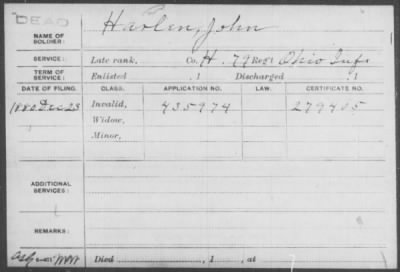 DEAD
NAME OF SOLDIER: John
SERVICE: Late rank, Co. H. 79 Reg't Ohio Inf.
TERM OF SERVICE: Enlisted , 1 Discharged , 1
DATE OF FILING. CLASS. APPLICATION NO. LAW. CERTIFICATE NO.
1880 Dec 23 Invalid, 435974 279405
Widow,
Minor,
ADDITIONAL SERVICES:
REMARKS:
Died , 1 , at